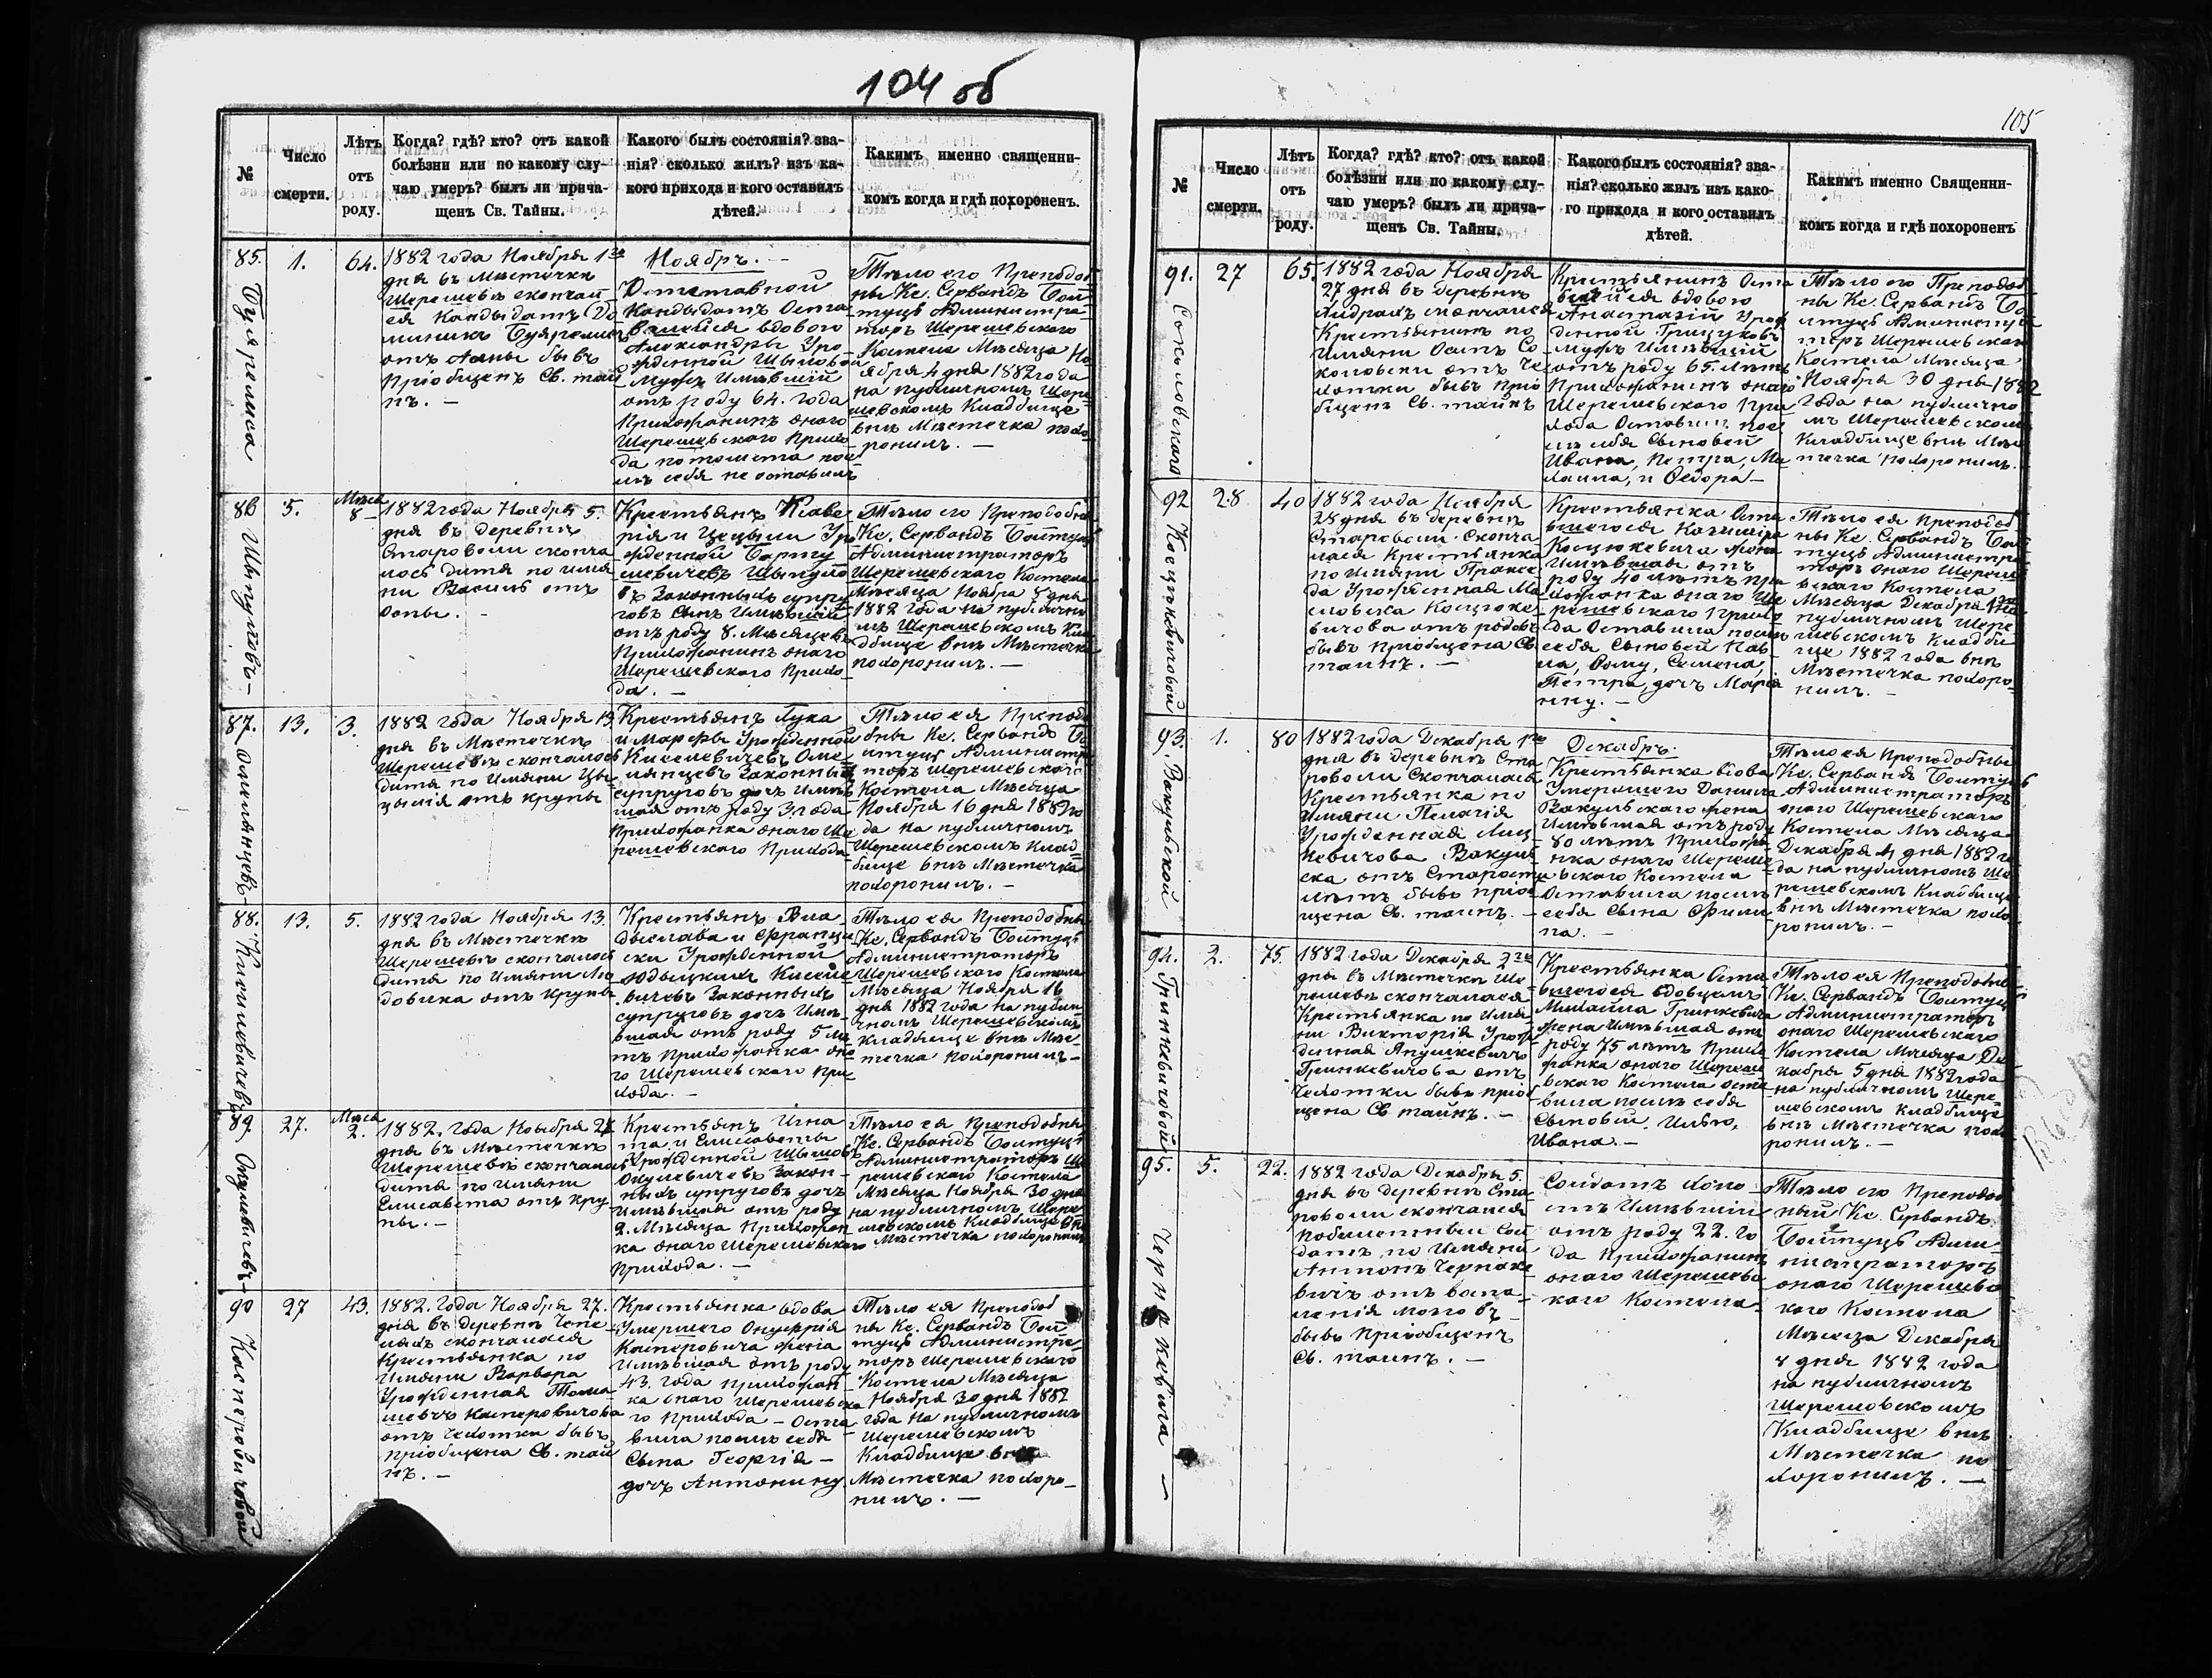 104 об
№
Число
смерти.
Лѣтъ
отъ
роду.
Когда? гдѣ? кто? отъ какой
болѣзни или по какому слу-
чаю умеръ? былъ ли прича-
щенъ Св. Тайны.
Какого былъ состоянія? зва-
нія? сколько жилъ? изъ ка-
кого прихода и кого оставилъ
дѣтей.
Какимъ именно священни-
комъ когда и гдѣ похороненъ.
85.
1.
64.
1882 года Ноября 1го
дня въ Мѣстечкѣ
Шерешевѣ скончал
ся Кандыдатъ До
миникъ
бывъ
Пріобщенъ Св. тай
нъ. —
Ноябрь. —
Отставной
Кандыдатъ Оста
вшейся вдовою
Александры Уро
жденной
Мужъ Имѣвшій
отъ роду 64. года
Прихожанинъ онаго
Шерешевского Прихо
да потомста пос
лѣ себя не оставилъ
Тѣло его Преподоб
ны Кс. Сервандъ Бой
туць Администра
торъ Шерешевского
Костела Мѣсяца Но
ября 4 дня 1882 года
на публичномъ Шере
шевскомъ Кладбище
внѣ Мѣстечка похо
ронилъ. —
86
5.
Мѣся
8
1882 года Ноября 5.
дня въ деревни
Староволи сконча
лось дитя по имя
ни Василь отъ
оспы. —
Крестьянъ Ксаве
рія и Цецыліи Уро
жденной Барту
шевичевъ
Законныхъ супру
говъ Сынъ Имѣвшій
отъ роду 8. Мѣсяцевъ
Прихожанинъ онаго
Шерешевского Прихо
да. —
Тѣло его Преподобны
Кс. Сервандъ Бойтуць
Администраторъ
Шерешевского Костела
Мѣсяца Ноября дня
1882 года на публично
мъ Шерешевскомъ Кла
дбище внѣ Мѣстечка
похоронилъ. —
87.
13.
3.
1882 года Ноября 13
дня въ Мѣстечкѣ
Шерешевѣ скончалось
дитя по Имяни Цы
цылія отъ крупы
Крестьянъ Лука
и Марфы Урожденной
Киселевичевъ Оме
лянцевъ Законныхъ
супруговъ дочъ Имѣв
шая отъ роду 3. года
Прихожанка онаго Ше
решевского Прихода
Тѣло ея Преподо
бны Кс. Сервандъ Бо
йтуць Администра
торъ Шерешевского
Костела Мѣсяца
Ноября 16 дня 1882 го
да на публичномъ
Шерешевскомъ Клад
бище внѣ Мѣстечка
похоронилъ. —
88.
Киселевичевъ
13.
5.
1882 года Ноября 13.
дня въ Мѣстечкѣ
Шерешевѣ скончалось
дитя по Имяни Лю
довика отъ Крупы
Крестьянъ Вла
дыслава и Францы
ски Урожденной
Киселе
вичевъ Законныхъ
супруговъ дочъ Имѣ
вшая отъ роду 5 лѣ
тъ Прихожанка она
го Шерешевского При
хода. —
Тѣло ея Преподобны
Кс. Сервандъ Бойтуць
Администраторъ
Шерешевского Костела
Мѣсяца Ноября 16
дня 1882 года на публи
чномъ Шерешевскомъ
Кладбище внѣ Мѣс
течка похоронилъ —
89.
27.
Мѣся
2.
1882. года Ноября 27
дня въ Мѣстечкѣ
Шерешевѣ скончалось
дитя по Имяни
Елисавета отъ кру
пы. —
Крестьянъ Игна
та и Елисаветы
Урожденной
Окулевичевъ Закон
ныхъ супруговъ дочъ
Имѣвшая отъ роду
2. Мѣсяца Прихожан
ка онаго Шерешевского
Прихода. —
Тѣло ея Преподобны
Кс. Сервандъ Бойтуць
Администраторъ Ше
решевского Костела
Мѣсяца Ноября 30 дня
на публичномъ Шере
шевскомъ Кладбище внѣ
Мѣстечка похоронилъ
90
Касперовичовой
27
43.
1882. Года Ноября 27.
дня въ деревни
скончалася
Крестьянка по
Имяни Варвара
Урожденная Тома
шевичъ Касперовичова
отъ Чахотки бывъ
пріобщена Св. тай
нъ. —
Крестьянка вдова
Умершего Онуфрія
Касперовича жена
Имѣвшая отъ роду
43. года прихожан
ка онаго Шерешевска
го Прихода — Оста
вила послѣ себя
Сына Георгія —
дочъ Антонину.
Тѣло ея Преподоб
ны Кс. Сервандъ Бой
туць Администра
торъ Шерешевского
Костела Мѣсяца
Ноября 30 дня 1882
года на публичномъ
Шерешевскомъ
Кладбище внѣ
Мѣстечка похоро
нилъ. —
105
№
Число
смерти.
Лѣтъ
отъ
роду.
Когда? гдѣ? кто? отъ какой
болѣзни или по какому слу-
чаю умеръ? былъ ли прича-
щенъ Св. Тайны.
Какого былъ состоянія? зва-
нія? сколько жилъ изъ како-
го прихода и кого оставилъ
дѣтей.
Какимъ именно Священни-
комъ когда и гдѣ похороненъ
91.
Соколовскаго
27
65.
1882 года Ноября
27 дня въ деревнѣ
скончался
Крестьянинъ по
Имяни Осипъ Со
коловски отъ Ча
хотки бывъ прио
бщенъ Св. тайнъ
Крестьянинъ Оста
вшейся вдовою
Анастазіи Урож
денной Грицуковъ
мужъ Имѣвшій
отъ роду 65. лѣтъ
Прихожанинъ онаго
Шерешевского При
хода Оставилъ пос
лѣ себя Сыновей
Ивана, Петра, Ми
хаила, и Ѳедора —
Тѣло его Преподоб
ны Кс. Сервандъ Бо
йтуць Администра
торъ Шерешевского
Костела Мѣсяца
Ноября 30 дня 1882
года на публично
мъ Шерешевскомъ
Кладбище внѣ Мѣс
течка похоронилъ.
92
28
40
1882 года Ноября
28 дня въ деревни
Староволи Сконча
лася Крестьянка
по Имяни Праксе
да Урожденная Ма
Костюке
вичова отъ родовъ
бывъ пріобщена Св.
таинъ. —
Крестьянка Оста
вшегося Казимира
Костюкевича жена
Имѣвшая отъ
роду 40 лѣтъ при
хожанка онаго Ше
решевского Прихо
да Оставила послѣ
себя Сыновей Пав
ла, Фому, Семена,
Петра, дочъ Марья
нну. —
Тѣло ея Преподоб
ны Кс. Сервандъ Бой
туць Администра
торъ онаго Шереше
вского Костела
Мѣсяца Декабря 1го на
публичномъ Шере
шевскомъ Кладби
ще 1882 года внѣ
Мѣстечка похоро
нилъ. —
93.
Вакульской
1.
80
1882 года Декабря 1го
дня въ деревни Ста
роволи Скончалась
Крестьянка по
Имяни Пелагія
Урожденная Лиц
кевичова Вакуль
ска отъ Старости
лѣтъ бывъ пріоб
щена Св. таинъ. —
Декабрь.
Крестьянка вдова
Умершого Данила
Вакульского жена
Имѣвшая отъ роду
80 лѣтъ Прихожа
нка онаго Шереше
вского Костела
Оставила послѣ
себя Сына Фили
па. —
Тѣло ея Преподобны
Кс. Сервандъ Бойтуць
Администраторъ
онаго Шерешевского
Костела Мѣсяца
Декабря 4 дня 1882 го
да на публичномъ Ше
решевскомъ Кладбище
внѣ Мѣстечка похо
ронилъ. —
94.
Гринкевичовой
2.
75
1882 года Декабря 2го
дня въ Мѣстечкѣ Ше
решевѣ скончалася
Крестьянка по Имя
ни Викторія Урож
денная Янушкевичъ
Гринкевичова отъ
Чехотки бывъ пріоб
щена Св таинъ. —
Крестьянка Оста
вшегося вдовцемъ
Михайла Гринкевича
жена Имѣвшая отъ
роду 75 лѣтъ Прихо
жанка онаго Шереше
вского Костела оста
вила послѣ себя
Сыновей, Илью,
Ивана. —
Тѣло ея Преподобны
Кс. Сервандъ Бойтуць
Администраторъ
онаго Шерешевского
Костела Мѣсяца Де
кабря 5 дня 1882 года
на публичномъ Шере
шевскомъ Кладбище
внѣ Мѣстечка похо
ронилъ. —
95.
Чернакевича —
5.
22.
1882 года Декабря 5.
дня въ деревни Ста
роволи скончался
Сол
датъ по Имяни
Антонъ Чернаке
вичъ отъ воспа
ленія мозговъ
бывъ Пріобщенъ
Св. таинъ. —
Солдатъ холо
стъ Имѣвшій
отъ роду 22. го
да Прихожанинъ
онаго Шерешевс
кого Костела.
Тѣло его Преподоб
ный Кс. Сервандъ
Бойтуць Адми
нистраторъ
онаго Шерешевс
кого Костела
Мѣсяца Декабря
8 дня 1882 года
на публичномъ
Шерешевскомъ
Кладбище внѣ
Мѣстечка по
хоронилъ. —